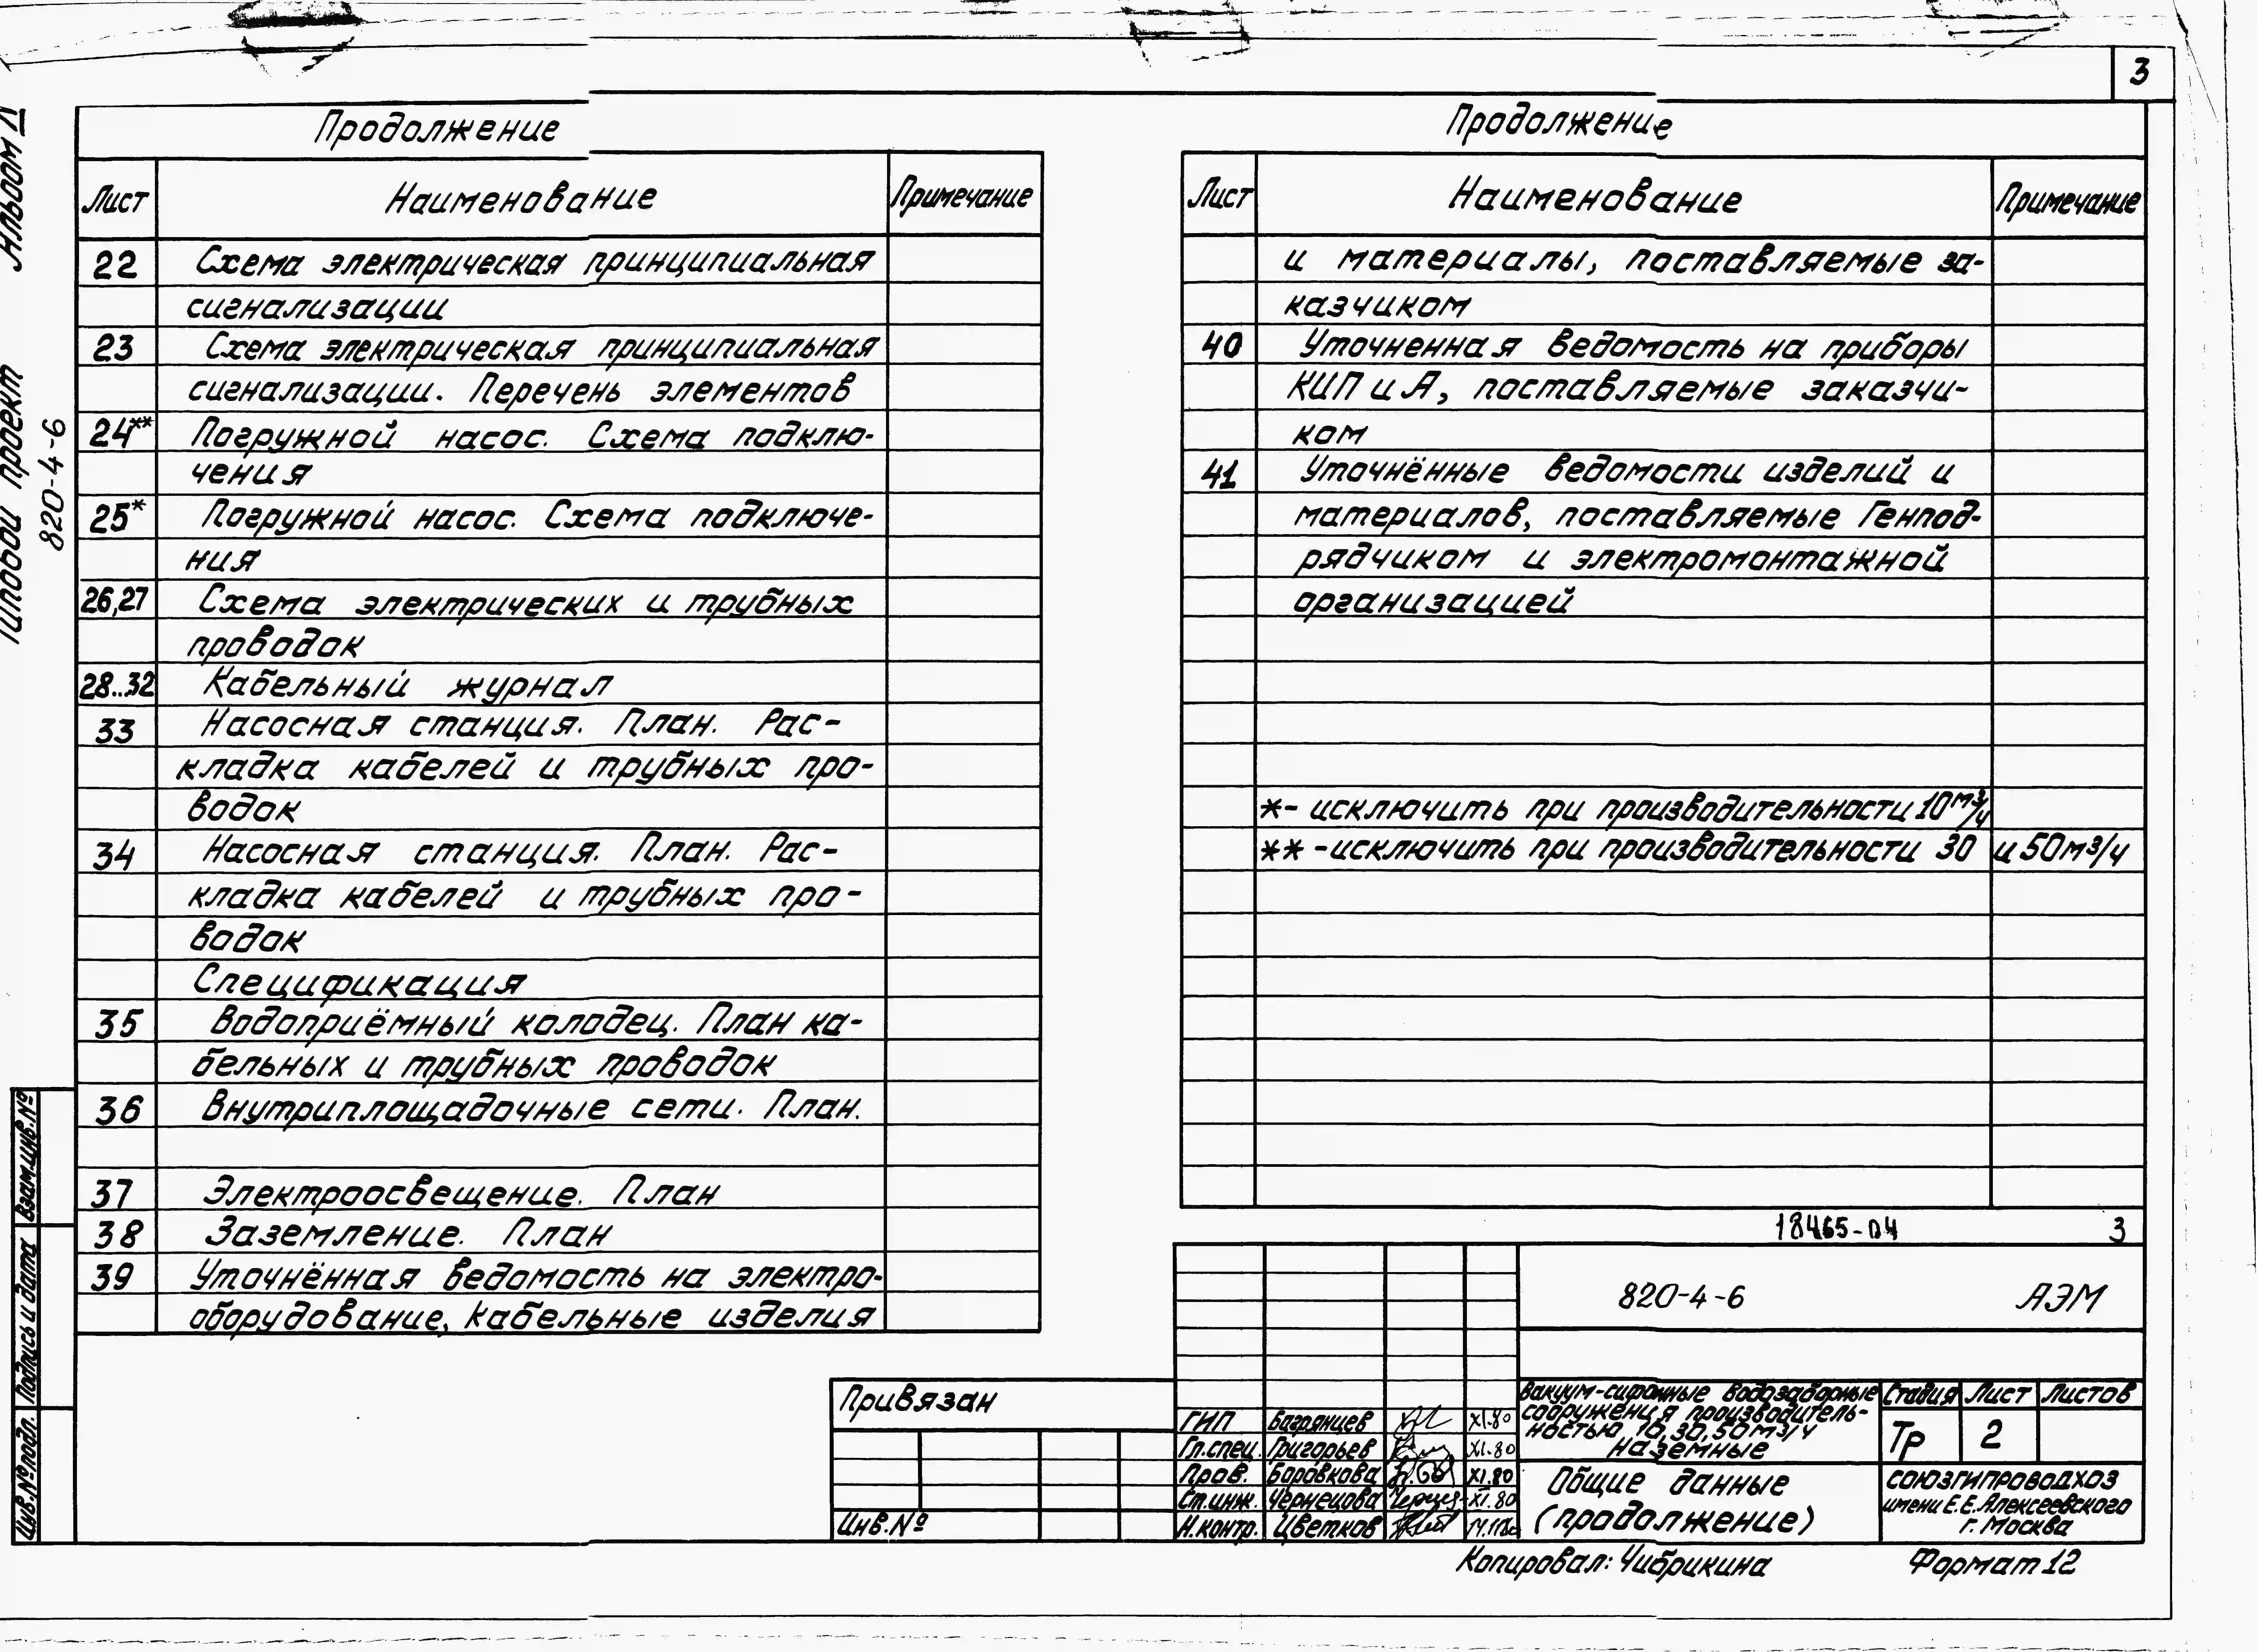 3
Альбом IV
Типовой проект
820-4-6
Продолжение
Лист Наименование Примечание
22 Схема электрическая принципиальная
сигнализации
23 Схема электрическая принципиальная
сигнализации. Перечень элементов
24** Погружной насос. Схема подклю-
чения
25* Погружной насос. Схема подключе-
ния
26,27 Схема электрических и трубных
проводок
28...32 Кабельный журнал
33 Насосная станция. План. Рас-
кладка кабелей и трубных про-
водок
34 Насосная станция. План. Рас-
кладка кабелей и трубных про-
водок
Спецификация
35 Водоприёмный колодец. План ка-
бельных и трубных проводок
36 Внутриплощадочные сети. План.
37 Электроосвещение. План
38 Заземление. План
39 Уточнённая ведомость на электро-
оборудование, кабельные изделия
Продолжение
Лист Наименование Примечание
и материалы, поставляемые за-
казчиком
40 Уточненная ведомость на приборы
КИП и А, поставляемые заказчи-
ком
41 Уточнённые ведомости изделий и
материалов, поставляемые Генпод-
рядчиком и электромонтажной
организацией
*- исключить при производительности 10 м³/ч
** -исключить при производительности 30 и 50 м³/ч
18465-04 3
820-4-6 АЭМ
Вакуум-сифонные водозаборные
сооружения производитель-
ностью 10,30,50 м³/ч
наземные
Стадия Лист Листов
Тр 2
Общие данные
(продолжение)
СОЮЗГИПРОВОДХОЗ
имени Е.Е.Алексеевского
г. Москва
ГИП Багрянцев XI.80
Гл.спец. Григорьев XI.80
Пров. Боровкова XI.80
Ст.инж. Чернецова XI.80
Н.контр. Цветков
Привязан
Инв.№
Взам.инв.№
Подпись и дата
Инв.№подл.
Копировал: Чибрикина Формат 12